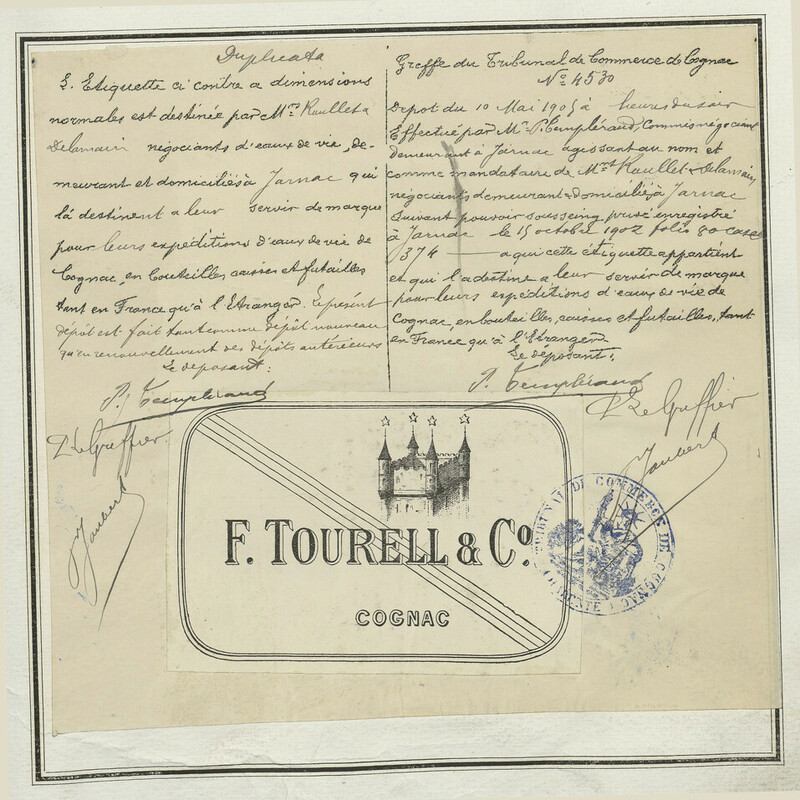 Duplicata
L'Etiquette ci contre a dimensions
normales est destinée par Mrs Roullet &
Delamain négociants d'eaux de vie, de-
meurant et domiciliés à Jarnac qui
la destinent a leur servir de marque
pour leurs expéditions d'eaux de vie de
Cognac, en bouteilles caisses et futailles
tant en France qu'à l'Etranger. Le présent
dépôt est fait tant comme dépôt nouveau
qu'en renouvellement des dépôts antérieurs
Le deposant:
P. Templéraud
Le Greffier
Joubert
Greffe du Tribunal de Commerce de Cognac
No 4530
Depot du 10 Mai 1905 à heures du soir
Effectué par Mr P. Templéraud, Commis négociant
demeurant à Jarnac agissant au nom et
comme mandataire de Mrs Roullet & Delamain
négociants demeurant & domiciliés à Jarnac
suivant pouvoir sous seing privé enregistré
à Jarnac le 15 octobre 1902 folio 80 case
374 — a qui cette étiquette appartient
et qui l'a destine a leur servir de marque
pour leurs expéditions d'eaux de vie de
Cognac, en bouteilles, caisses et futailles, tant
en France qu'à l'Etranger
Le deposant:
P. Templéraud
Le Greffier
Joubert
F. TOURELL & Co.
COGNAC
TRIBUNAL DE COMMERCE DE COGNAC
CHARENTE